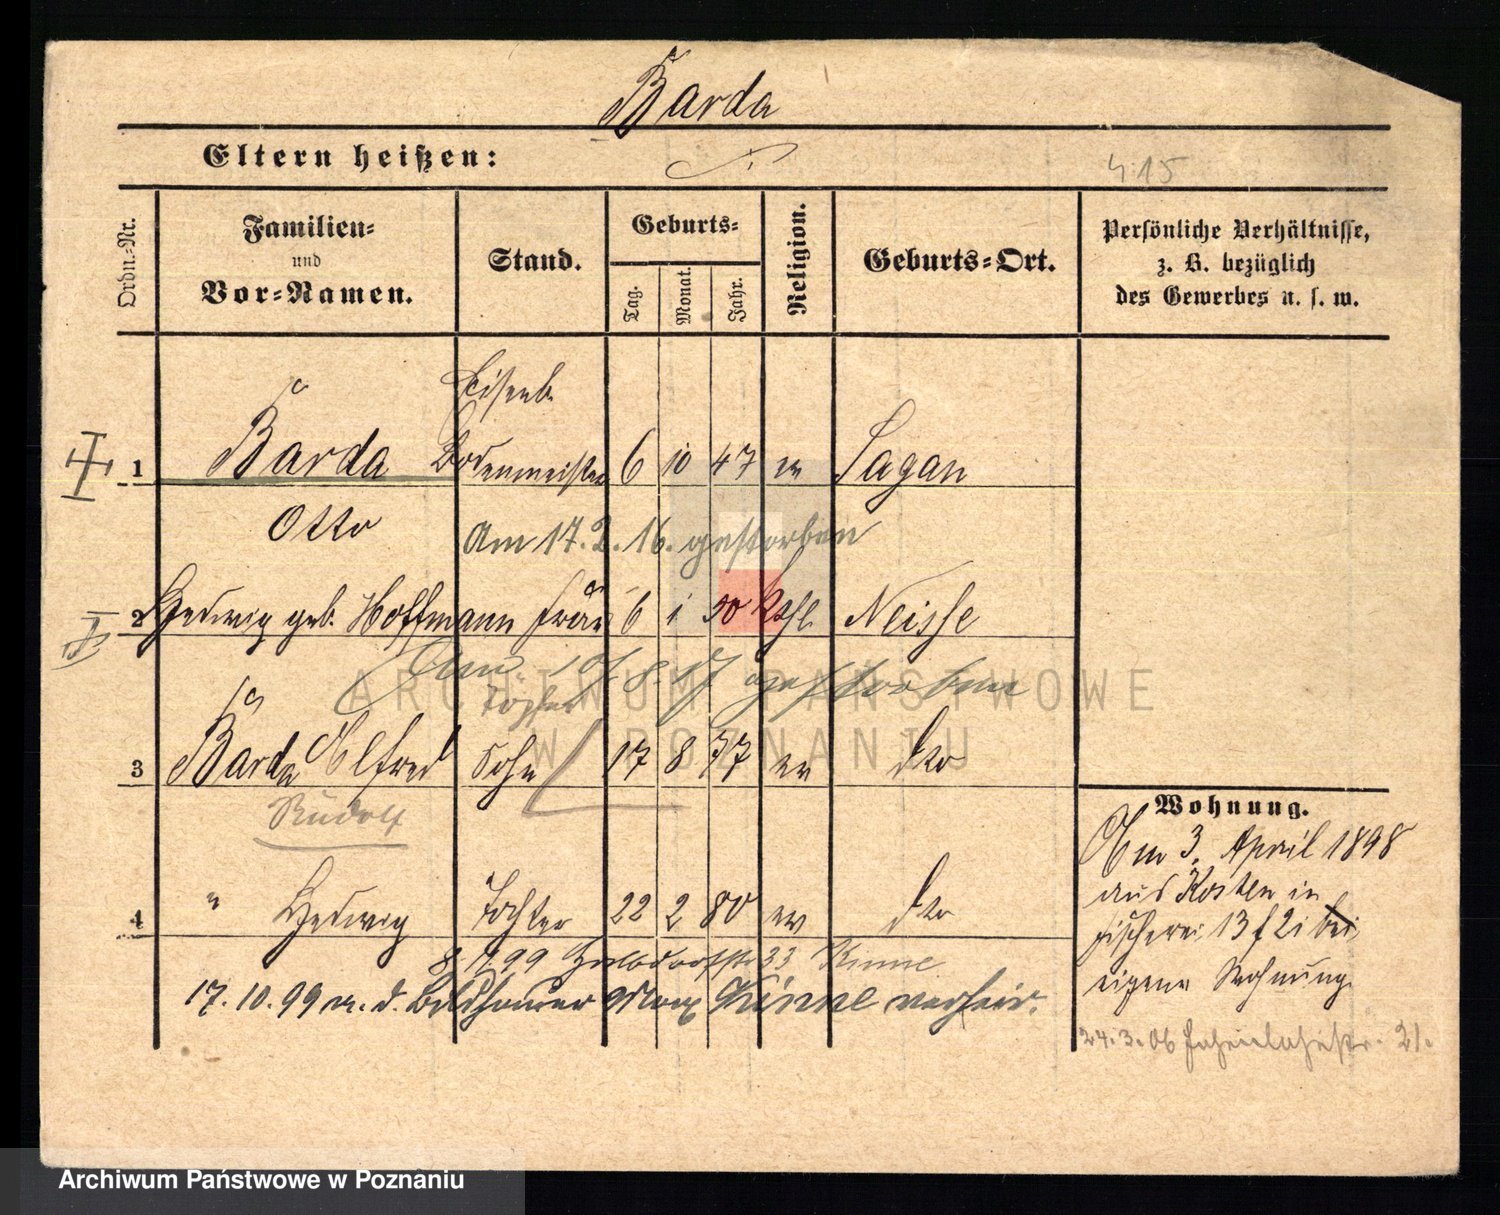 Barda
Eltern heißen:
415
Ordn.-Nr.
Familien-
und
Vor-Namen.
Stand.
Geburts-
Tag.
Monat.
Jahr.
Religion.
Geburts-Ort.
Persönliche Verhältnisse,
z. B. bezüglich
des Gewerbes u. s. w.
Eisenb.
1 Barda Bodenmeister 6 10 47 ev Sagan
Otto Am 17. 2. 16. gestorben
2 Hedwig geb. Hoffmann Frau 6 1 50 Kthl. Neisse
Am 8. 17 gestorben
Töpfer
3 Barda Alfred Sohn 17 8 77 ev dto
Rudolf
4 " Hedwig Tochter 22 2 80 ev dto
99 33 Kinne
17. 10. 99 m. d. Bildhauer Max Kinne verheir.
Wohnung.
Am 3. April 1898
aus Kosten in
Fischerei 13 f 2 i bei
eigene Wohnung
24. 3. 06 21.
ARCHIWUM PAŃSTWOWE
W POZNANIU
Archiwum Państwowe w Poznaniu